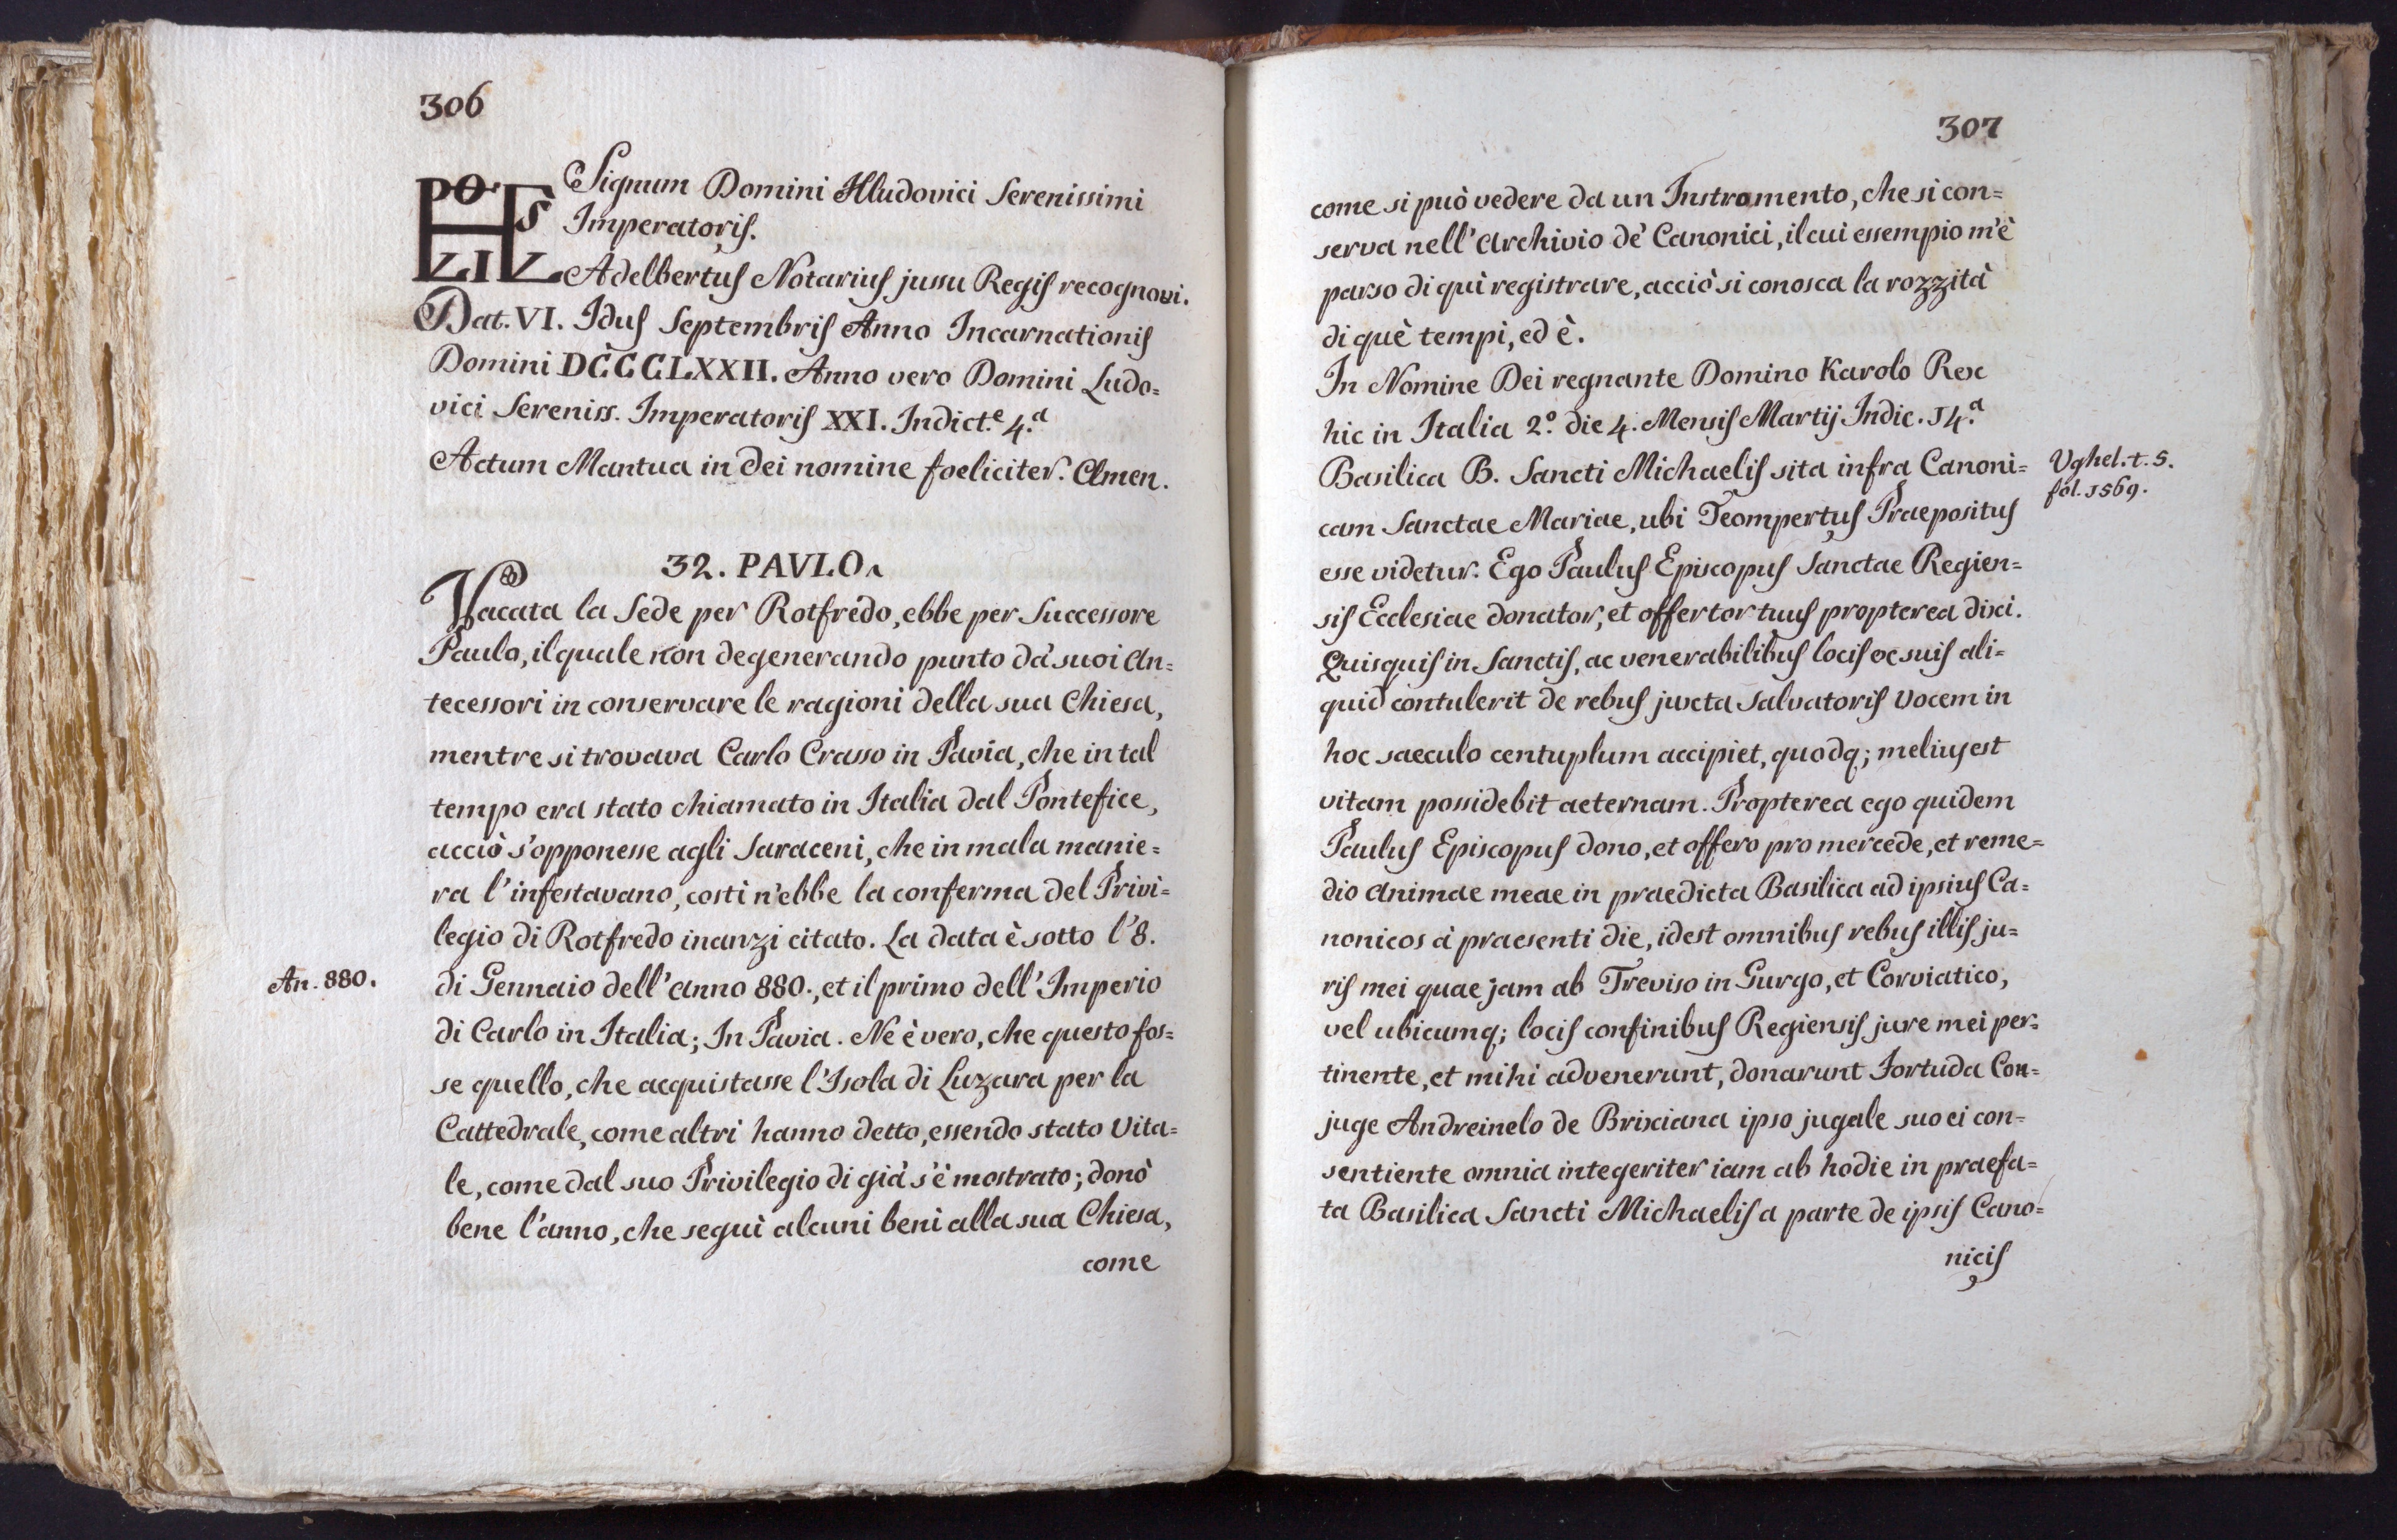 306
Signum Domini Hludovici Serenissimi
Imperatoris.
PO S
LI L
Adelbertus Notarius jussu Regis recognovi.
Dat. VI. Idus Septembris Anno Incarnationis
Domini DCCCLXXII. Anno vero Domini Ludo=
vici Sereniss. Imperatoris XXI. Indict.e 4.a
Actum Mantua in dei nomine foeliciter. Amen.
32. PAVLO.
Vacata la Sede per Rotfredo, ebbe per Successore
Paulo, il quale non degenerando punto da' suoi An=
tecessori in conservare le ragioni della sua Chiesa,
mentre si trovava Carlo Crasso in Pavia, che in tal
tempo era stato chiamato in Italia dal Pontefice,
acciò s'opponesse agli Saraceni, che in mala manie=
ra l'infestavano, costi n'ebbe la conferma del Privi=
legio di Rotfredo inanzi citato. La data è sotto l'8.
An. 880.
di Gennaio dell'anno 880., et il primo dell'Imperio
di Carlo in Italia; In Pavia. Ne è vero, che questo fos=
se quello, che acquistasse l'Isola di Luzara per la
Cattedrale, come altri hanno detto, essendo stato Vita=
le, come dal suo Privilegio di già s'è mostrato; donò
bene l'anno, che seguì alcuni beni alla sua Chiesa,
come
307
come si può vedere da un Instromento, che si con=
serva nell'Archivio de' Canonici, il cui essempio m'è
parso di quì registrare, acciò si conosca la rozzità
di què tempi, ed è.
In Nomine Dei regnante Domino Karolo Rex
hic in Italia 2.o die 4. Mensis Martij Indic. 14.a
Basilica B. Sancti Michaelis sita infra Canoni=
Vghel. t. 5.
fol. 1569.
cam Sanctae Mariae, ubi Teompertus Praepositus
esse videtur. Ego Paulus Episcopus Sanctae Regien=
sis Ecclesiae donator, et offertor tuus propterea dixi.
Quisquis in Sanctis, ac venerabilibus locis ex suis ali=
quid contulerit de rebus juxta Salvatoris Vocem in
hoc saeculo centuplum accipiet, quodq; melius est
vitam possidebit aeternam. Propterea ego quidem
Paulus Episcopus dono, et offero pro mercede, et reme=
dio Animae meae in praedicta Basilica ad ipsius Ca=
nonicos à praesenti die, idest omnibus rebus illis ju=
ris mei quae jam ab Treviso in Gurgo, et Corviatico,
vel ubicumq; locis confinibus Regiensis jure mei per=
tinente, et mihi advenerunt, donarunt Fortuda Con=
juge Andreinelo de Brixiana ipso jugale suo ei con=
sentiente omnia integeriter iam ab hodie in praefa=
ta Basilica Sancti Michaelis a parte de ipsis Cano=
nicis